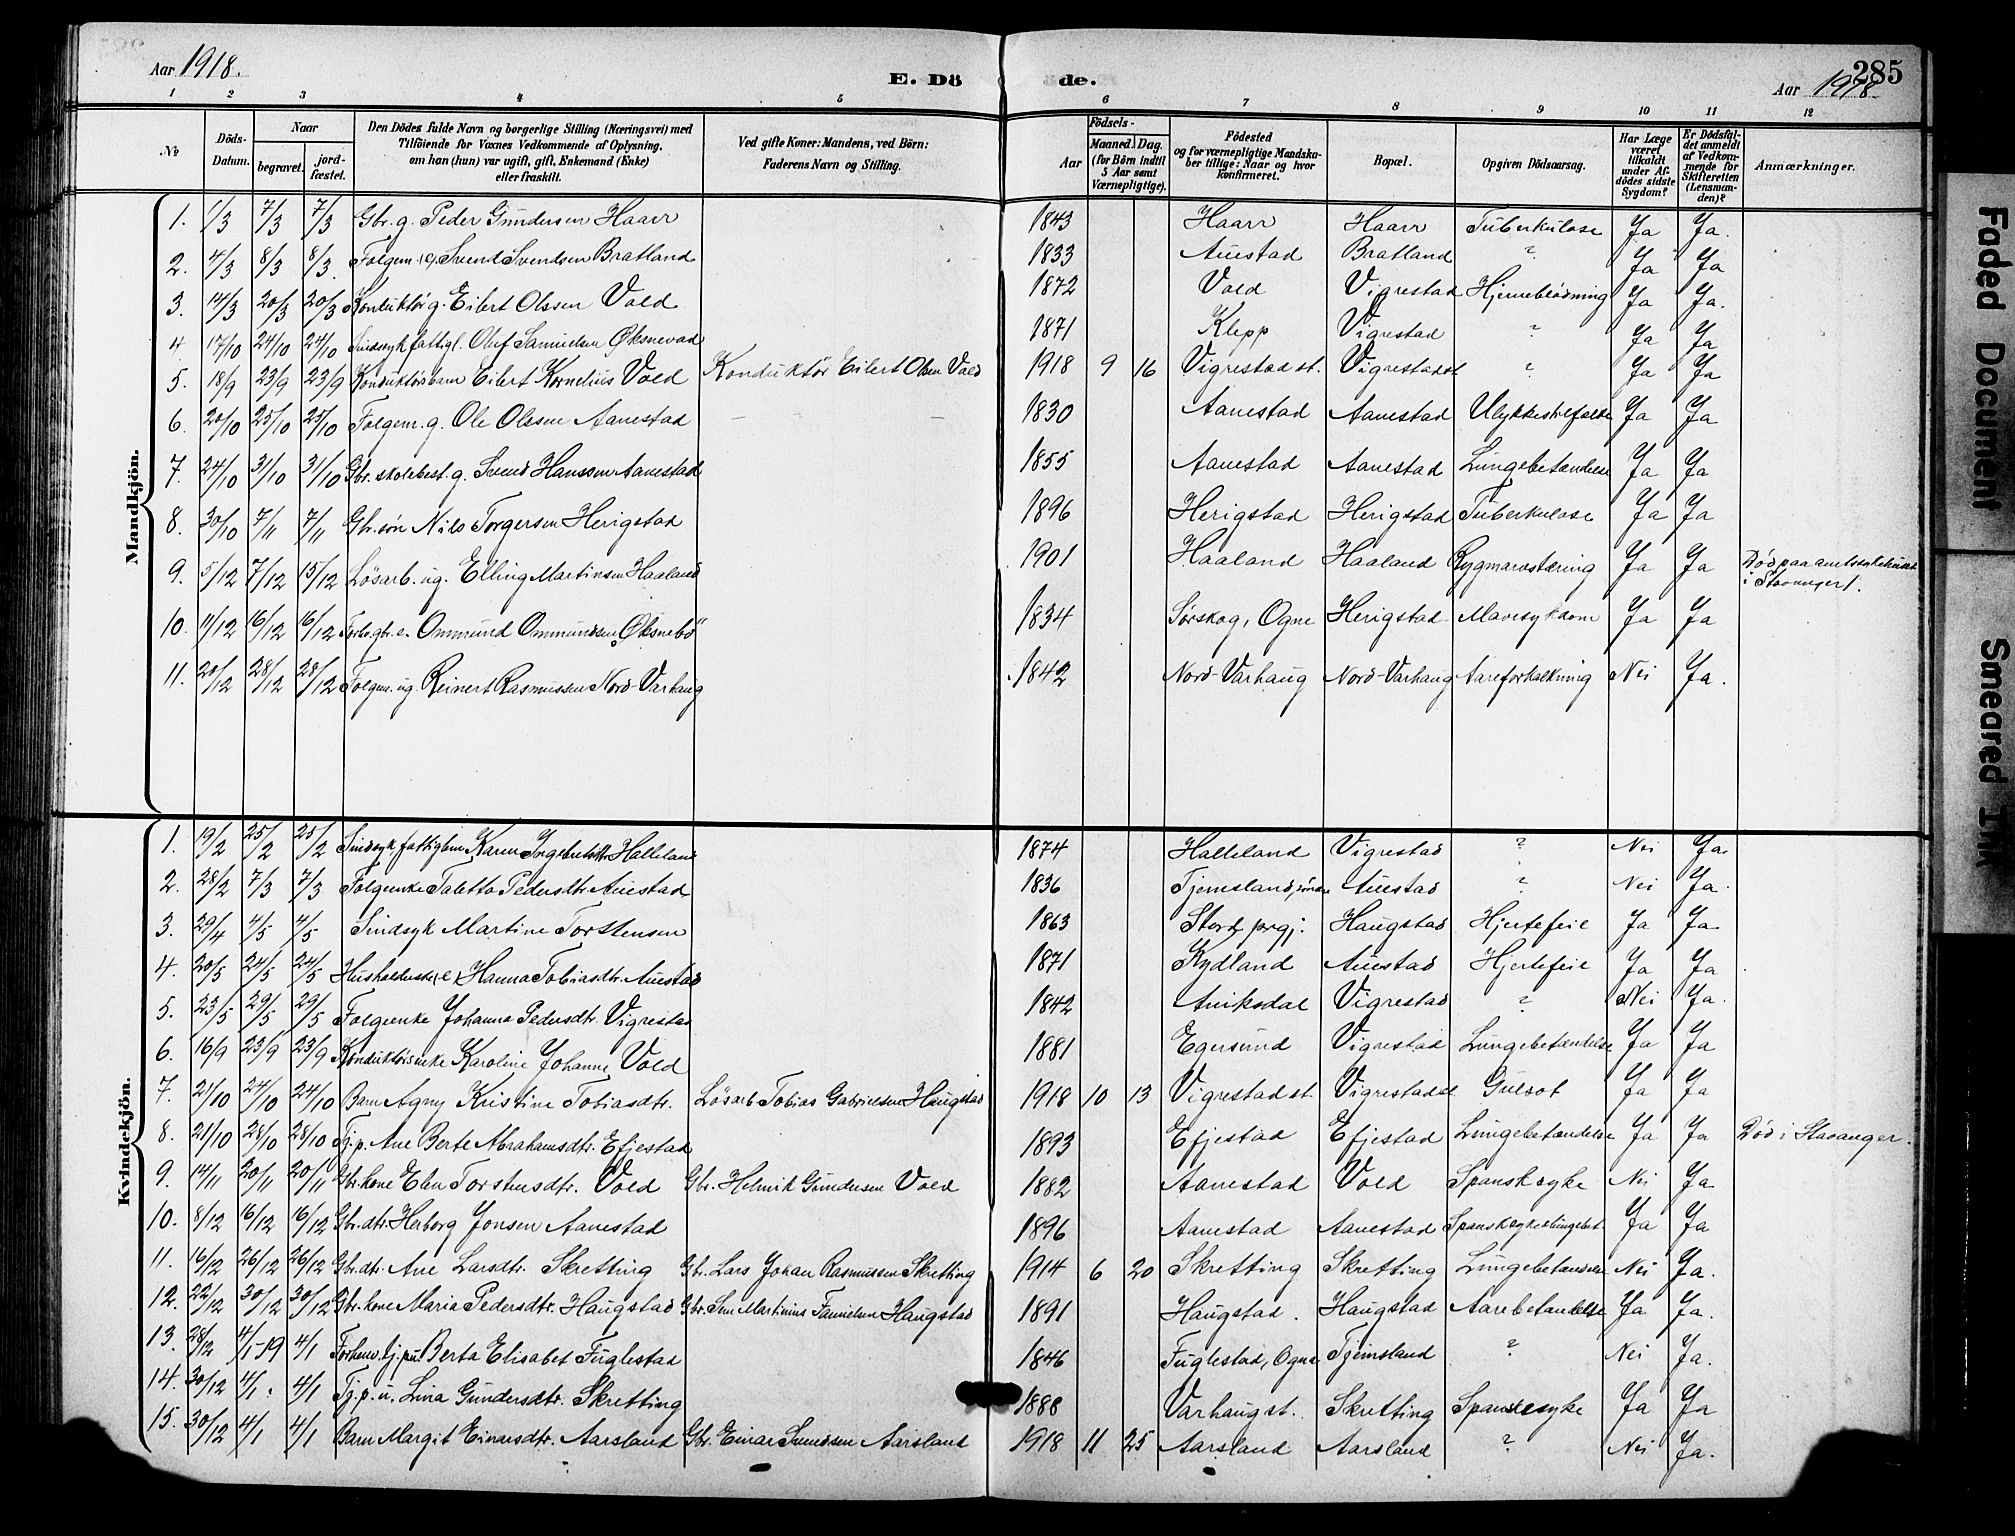 Aar 1918.
E. Dö de.
Aar 1918
285
1 2 3 4 5 6 7 8 9 10 11 12
№
Döds-Datum.
Naar
begravet.
jord-fæstet.
Den Dödes fulde Navn og borgerlige Stilling (Næringsvei) med Tilföiende for Voxnes Vedkommende af Oplysning, om han (hun) var ugift, gift, Enkemand (Enke) eller fraskilt.
Ved gifte Koner: Mandens, ved Börn: Faderens Navn og Stilling.
Födsels-
Aar
Maaned. Dag. (for Börn indtil 5 Aar samt Værnepligtige).
Födested og for værnepligtige Mandskaber tillige: Naar og hvor konfirmeret.
Bopæl.
Opgiven Dödsaarsag.
Har Læge været tilkaldt under Afdödes sidste Sygdom?
Er Dödsfaldet anmeldt af Vedkommende for Skifteretten (Lensmanden)?
Anmærkninger.
Mandkjön.
1. 1/3 7/3 7/3 Gbr. g. Peder Gundersen Haarr 1843 Haarr Haarr Tuberkulose Ja Ja.
2. 4/3 8/3 8/3. Folgem. g. Svend Svendsen Bratland 1833 Auestad Bratland ? Ja Ja
3. 14/3 20/3 20/3 Konduktör g. Eilert Olssen Vold 1872 Vold Vigrestad Hjerneblødning Ja Ja.
4. 17/10 24/10 24/10 Sindssyk fattigl. Oluf Samuelsen Øksnevad 1871 Klepp Vigrestad ? Ja Ja
5. 18/9 23/9 23/9 Konduktörbarn Eilert Kornelius Vold Konduktör Eilert Olsen Vold 1918 9 16 Vigrestad st. Vigrestad st ? Ja Ja
6. 20/10 25/10 25/10 Folgem. g. Ole Olssen Aanestad 1830 Aanestad Aanestad Ulykkestilfælde Ja Ja
7. 24/10 31/10 31/10 Gbr. skolebest. g. Svend Hanssen Aanestad 1855 Aanestad Aanestad Lungebetændelse Ja Ja
8. 30/10 7/11 7/11 Gbr. søn Nils Torgersen Herigstad 1896 Herigstad Herigstad Tuberkulose Ja Ja
9. 5/12 7/12 15/12 Lösarb. ug. Elling Martinsen Haaland 1901 Haaland Haaland Rygmarvstæring Ja Ja Död paa amtssykehuset i Stavanger.
10. 11/12 16/12 16/12 Forh. gbr. e. Ommund Ommundsen Øksnebø" 1834 Sørskog, Ogne Herigstad Mavesykdom Ja Ja
11. 20/12 28/12 28/12 Folgem. ug. Reinert Rasmussen Nord-Varhaug 1842 Nord-Varhaug Nord-Varhaug Aareforkalkning Nei Ja.
Kvindekjön.
1. 19/2 25/2 25/2 Sindssyk fattiglem Karen Ingebretsdtr. Halleland 1874 Halleland Vigrestad ? Nei Ja.
2. 28/2 7/3 7/3 Folgeenke Taletta Pedersdtr. Auestad 1836 Tjemsland, søndre Auestad ? Nei Ja.
3. 29/4 4/5 4/5 Sindsyk Martine Torstensen 1863 Stord prgj. Haugstad Hjertefeil Ja Ja
4. 20/5 24/5 24/5 Husholderske (e.) Hanna Tobiasdtr. Auestad 1871 Kydland Auestad Hjertefeil Ja Ja
5. 23/5 29/5 29/5 Folgeenke Johanna Pedersdtr. Vigrestad 1842 Aniksdal Vigrestad ? Nei Ja.
6. 16/9 23/9 23/9 Konduktörenke Karoline Johanne Vold 1881 Egersund Vigrestad Lungebetændelse Ja Ja
7. 21/10 24/10 24/10 Barn Agny Kristine Tobiasdtr. Lösarb. Tobias Gabrielsen Haugstad 1918 10 13 Vigrestad st. Vigrestad st Gulsot Ja Ja
8. 21/10 28/10 28/10 Tj. p. Ane Berte Abrahamsdtr. Efjestad 1893 Efjestad Efjestad Lungebetændelse Ja Ja Död i Stavanger.
9. 14/11 20/11 20/11 Gbr. kone Elen Torstensdtr. Vold Gbr. Helmik Gundersen Vold 1882 Aanestad Vold Spansk syke Nei Ja
10. 8/12 16/12 16/12 Gbr. dtr. Herborg Jonsen Aanestad 1896 Aanestad Aanestad Spansksyke Lungebet. Ja Ja
11. 16/12 26/12 26/12 Gbr. dtr. Ane Larsdtr. Skretting Gbr. Lars Johan Rasmussen Skretting 1914 6 20 Skretting Skretting Lungebetændelse Nei Ja.
12. 22/12 30/12 30/12 Gbr. kone Maria Pedersdtr. Haugstad Gbr. Sem Martinius Haugstad 1891 Haugstad. Haugstad Aarebetændelse Ja Ja.
13. 28/12 4/1-19 4/1 Forhenv. tj. p. u. Berta Elisabet Fuglestad 1846 Fuglestad, Ogna Tjemsland ? Nei Ja.
14. 30/12 4/1. 4/1 Tj. p. u. Lina Gundersdtr. Skretting 1888 Varhaug st. Skretting Spanskesyke Ja Ja
15. 30/12 4/1 4/1 Barn Margit Einarsdtr. Aarsland Gbr. Einar Svendsen Aarsland 1918 11 25 Aarsland Aarsland ? Nei Ja.
Faded Document
Smeared Ink